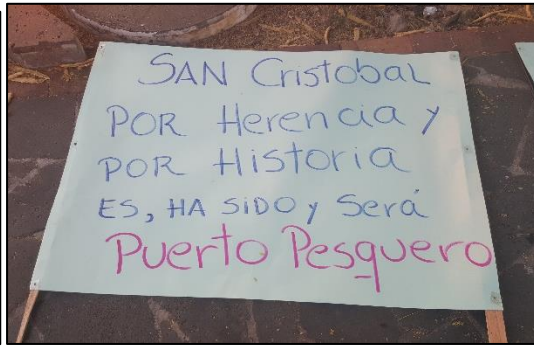 SAN Cristobal
POR Herencia y
POR Historia
ES, HA SIDO y Será
Puerto Pesquero